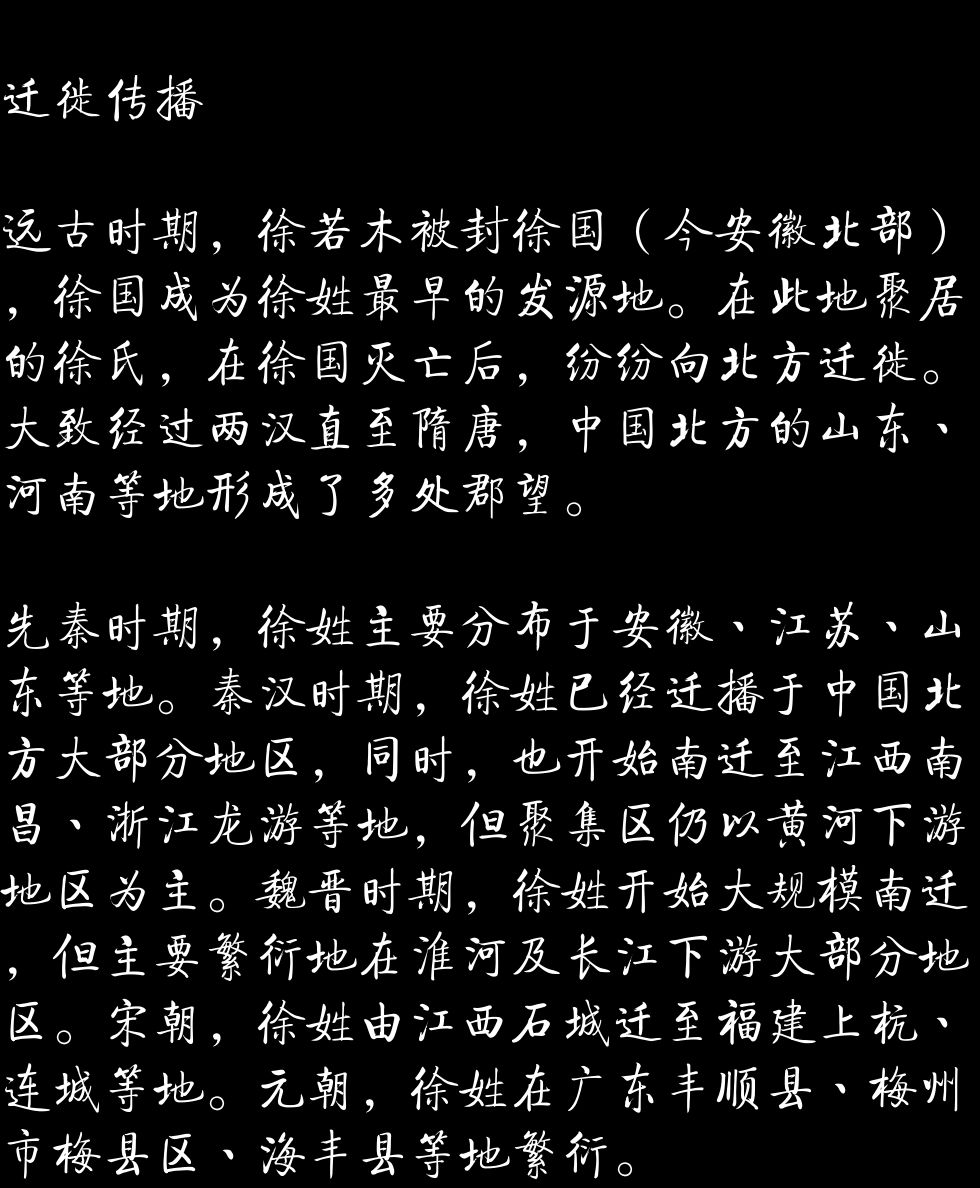 迁徙传播
远古时期，徐若木被封徐国（今安徽北部）
，徐国成为徐姓最早的发源地。在此地聚居
的徐氏，在徐国灭亡后，纷纷向北方迁徙。
大致经过两汉直至隋唐，中国北方的山东、
河南等地形成了多处郡望。
先秦时期，徐姓主要分布于安徽、江苏、山
东等地。秦汉时期，徐姓已经迁播于中国北
方大部分地区，同时，也开始南迁至江西南
昌、浙江龙游等地，但聚集区仍以黄河下游
地区为主。魏晋时期，徐姓开始大规模南迁
，但主要繁衍地在淮河及长江下游大部分地
区。宋朝，徐姓由江西石城迁至福建上杭、
连城等地。元朝，徐姓在广东丰顺县、梅州
市梅县区、海丰县等地繁衍。